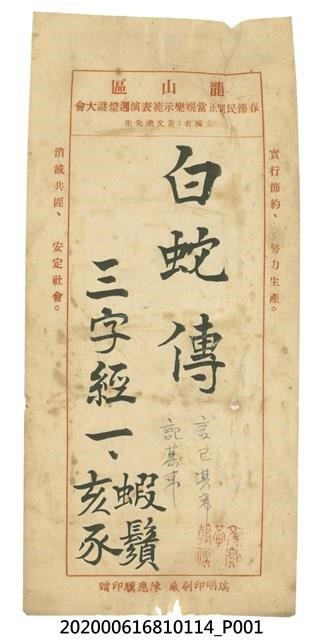 龍山區
春節民間正當娛樂示範表演週燈謎大會
主編者：黃文虎先生
實行節約、努力生產。
白蛇傳
言已其弟
記其弟
三字經一、
蝦鬚
亥豕
消滅共匪、安定社會。
瑞明印刷廠 陳應騏印贈
202000616810114_P001